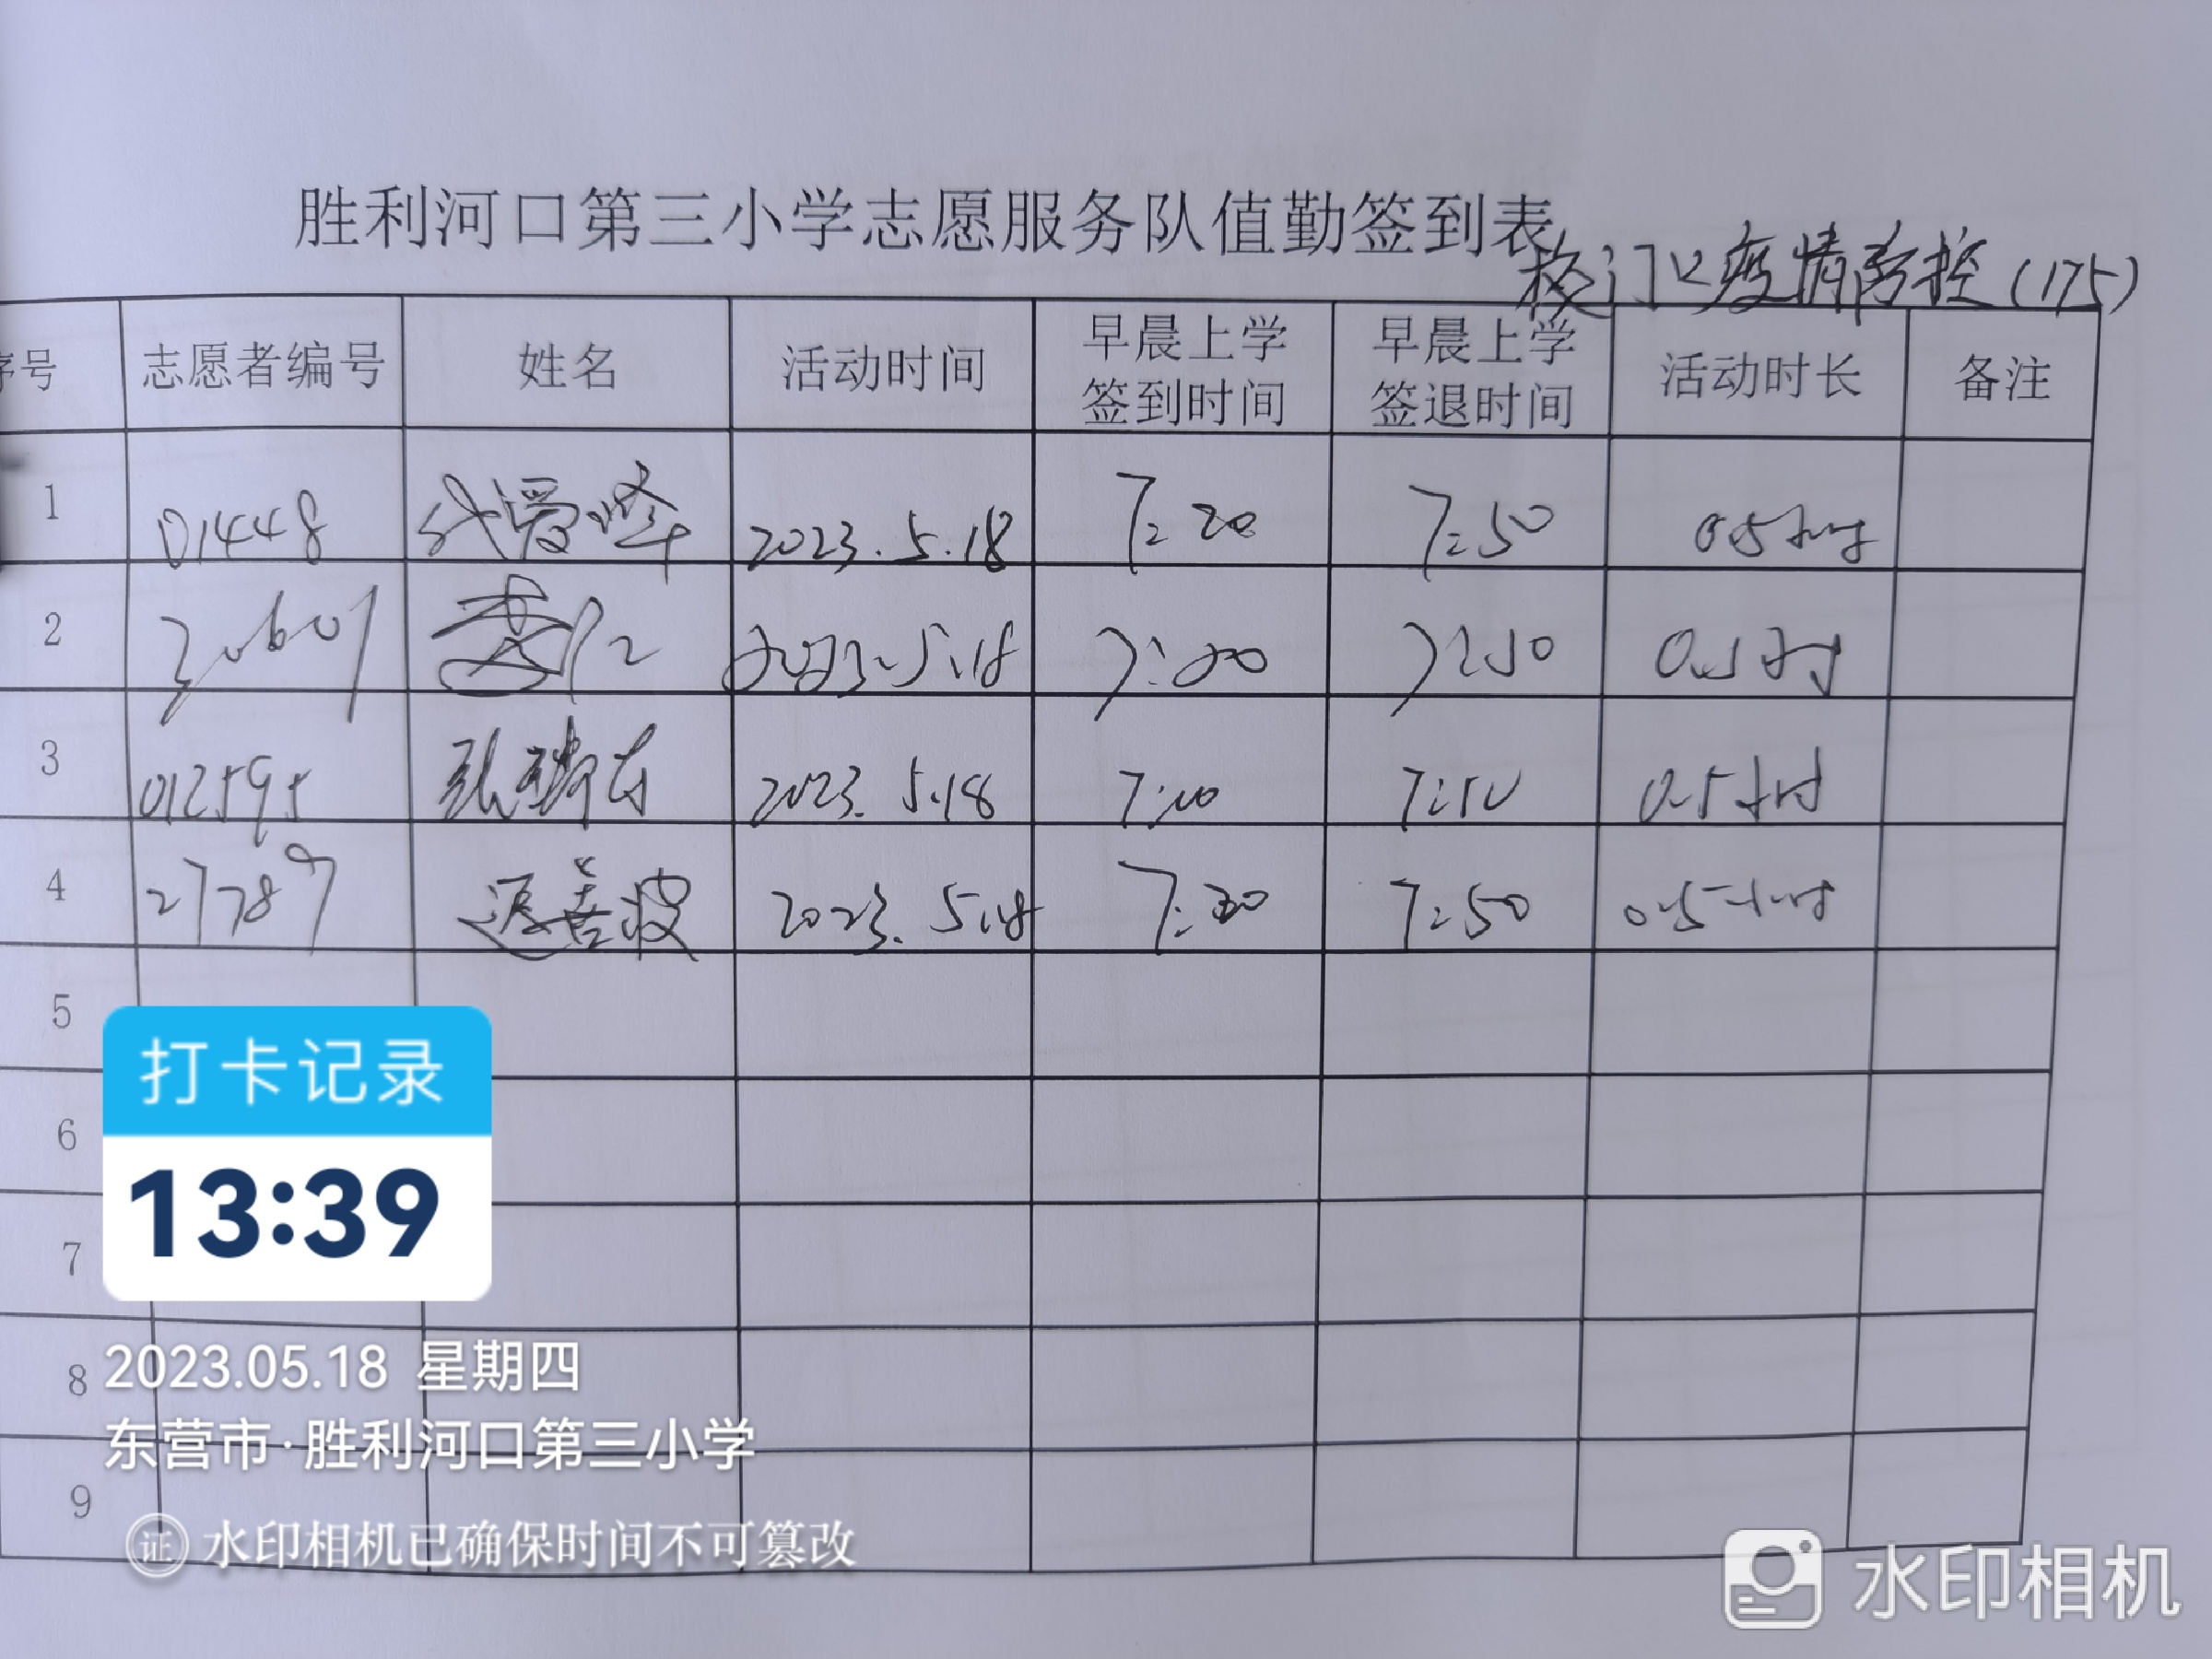 胜利河口第三小学志愿服务队值勤签到表
校门口疫情防控(175)
序号 志愿者编号 姓名 活动时间 早晨上学签到时间 早晨上学签退时间 活动时长 备注
1 01448 2023.5.18 7:20 7:50 0.5小时
2 2023.5.18 7:20 7:50 0.5小时
3 012595 2023.5.18 7:20 7:50 0.5小时
4 27787 2023.5.18 7:20 7:50 0.5小时
5
6
7
8
9
打卡记录
13:39
2023.05.18 星期四
东营市·胜利河口第三小学
证 水印相机已确保时间不可篡改
水印相机